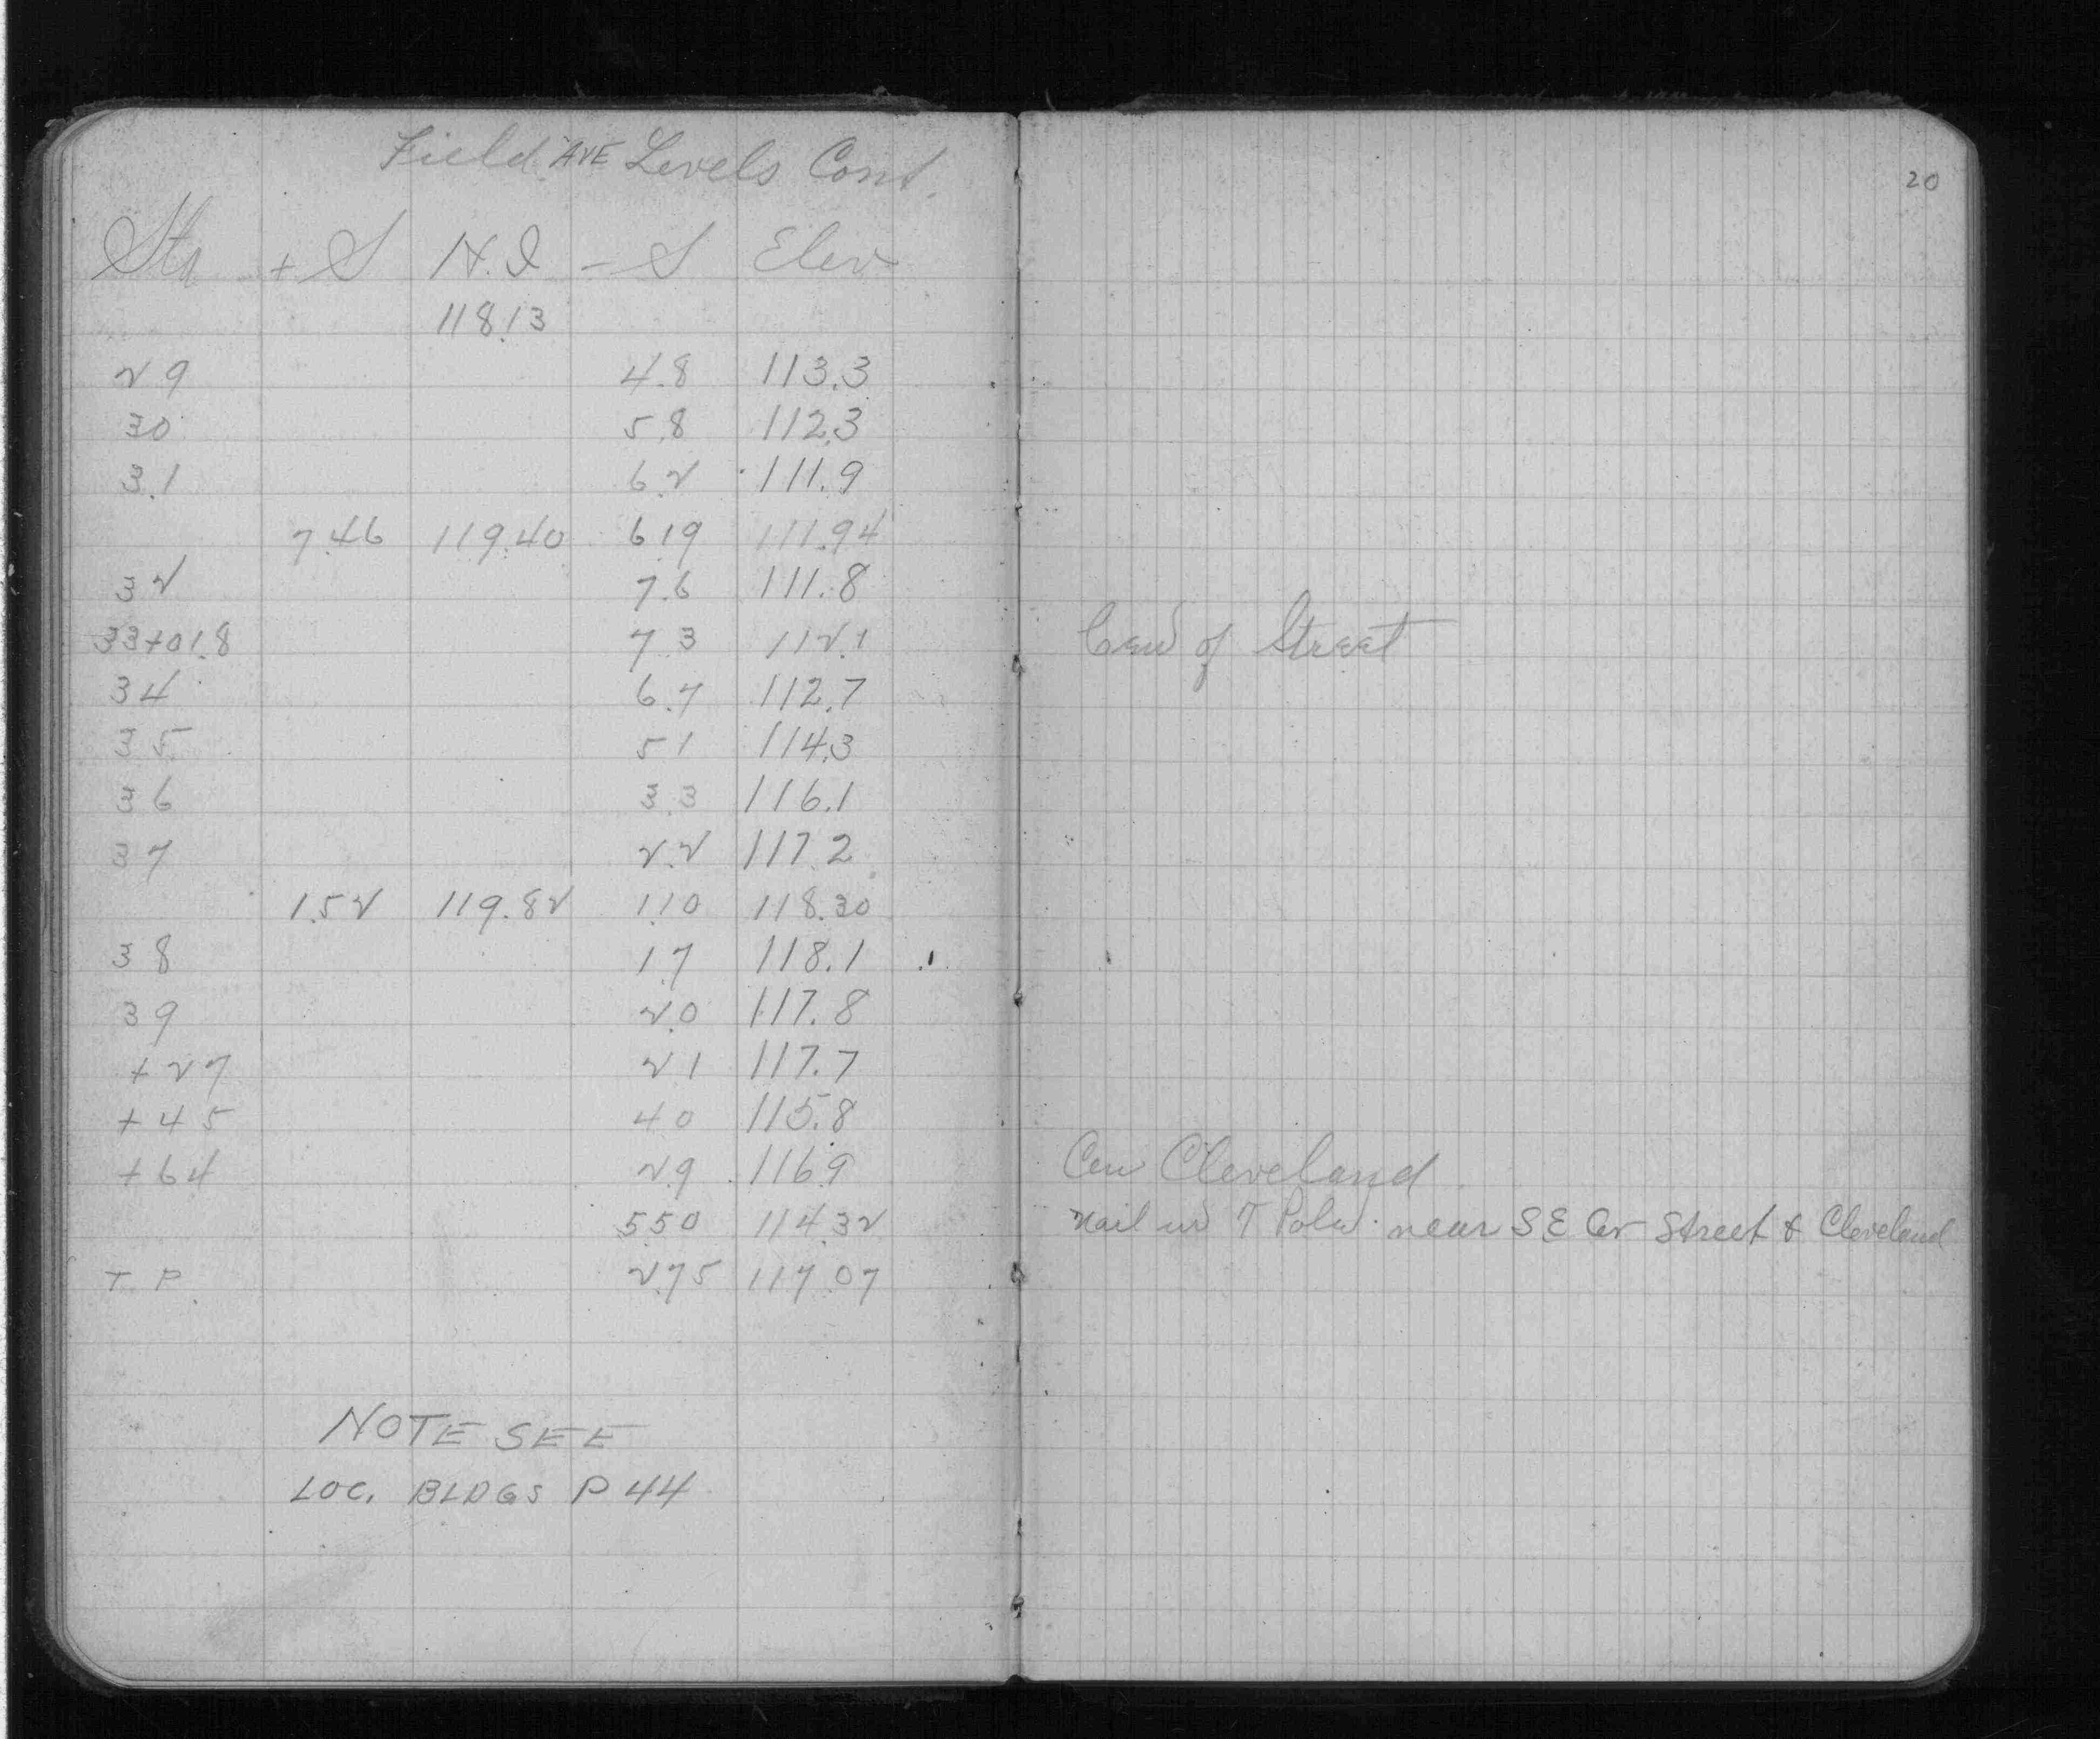 Field AVE Levels Cont.
20
Sta + S H.I - S Elev
118.13
29 4.8 113.3
30 5.8 112.3
31 6.2 111.9
7.46 119.40 6.19 111.94
32 7.6 111.8
33+01.8 7.3 112.1 Cen of Street
34 6.7 112.7
35 5.1 114.3
36 3.3 116.1
37 2.2 117.2
1.52 119.82 1.10 118.30
38 1.7 118.1
39 2.0 117.8
+27 2.1 117.7
+45 4.0 115.8
+64 2.9 116.9 Cen Cleveland
5.50 114.32 Nail in T Pole near S E Cor Street & Cleveland
T.P. 2.75 117.07
NOTE SEE
LOC. BLDGS P 44